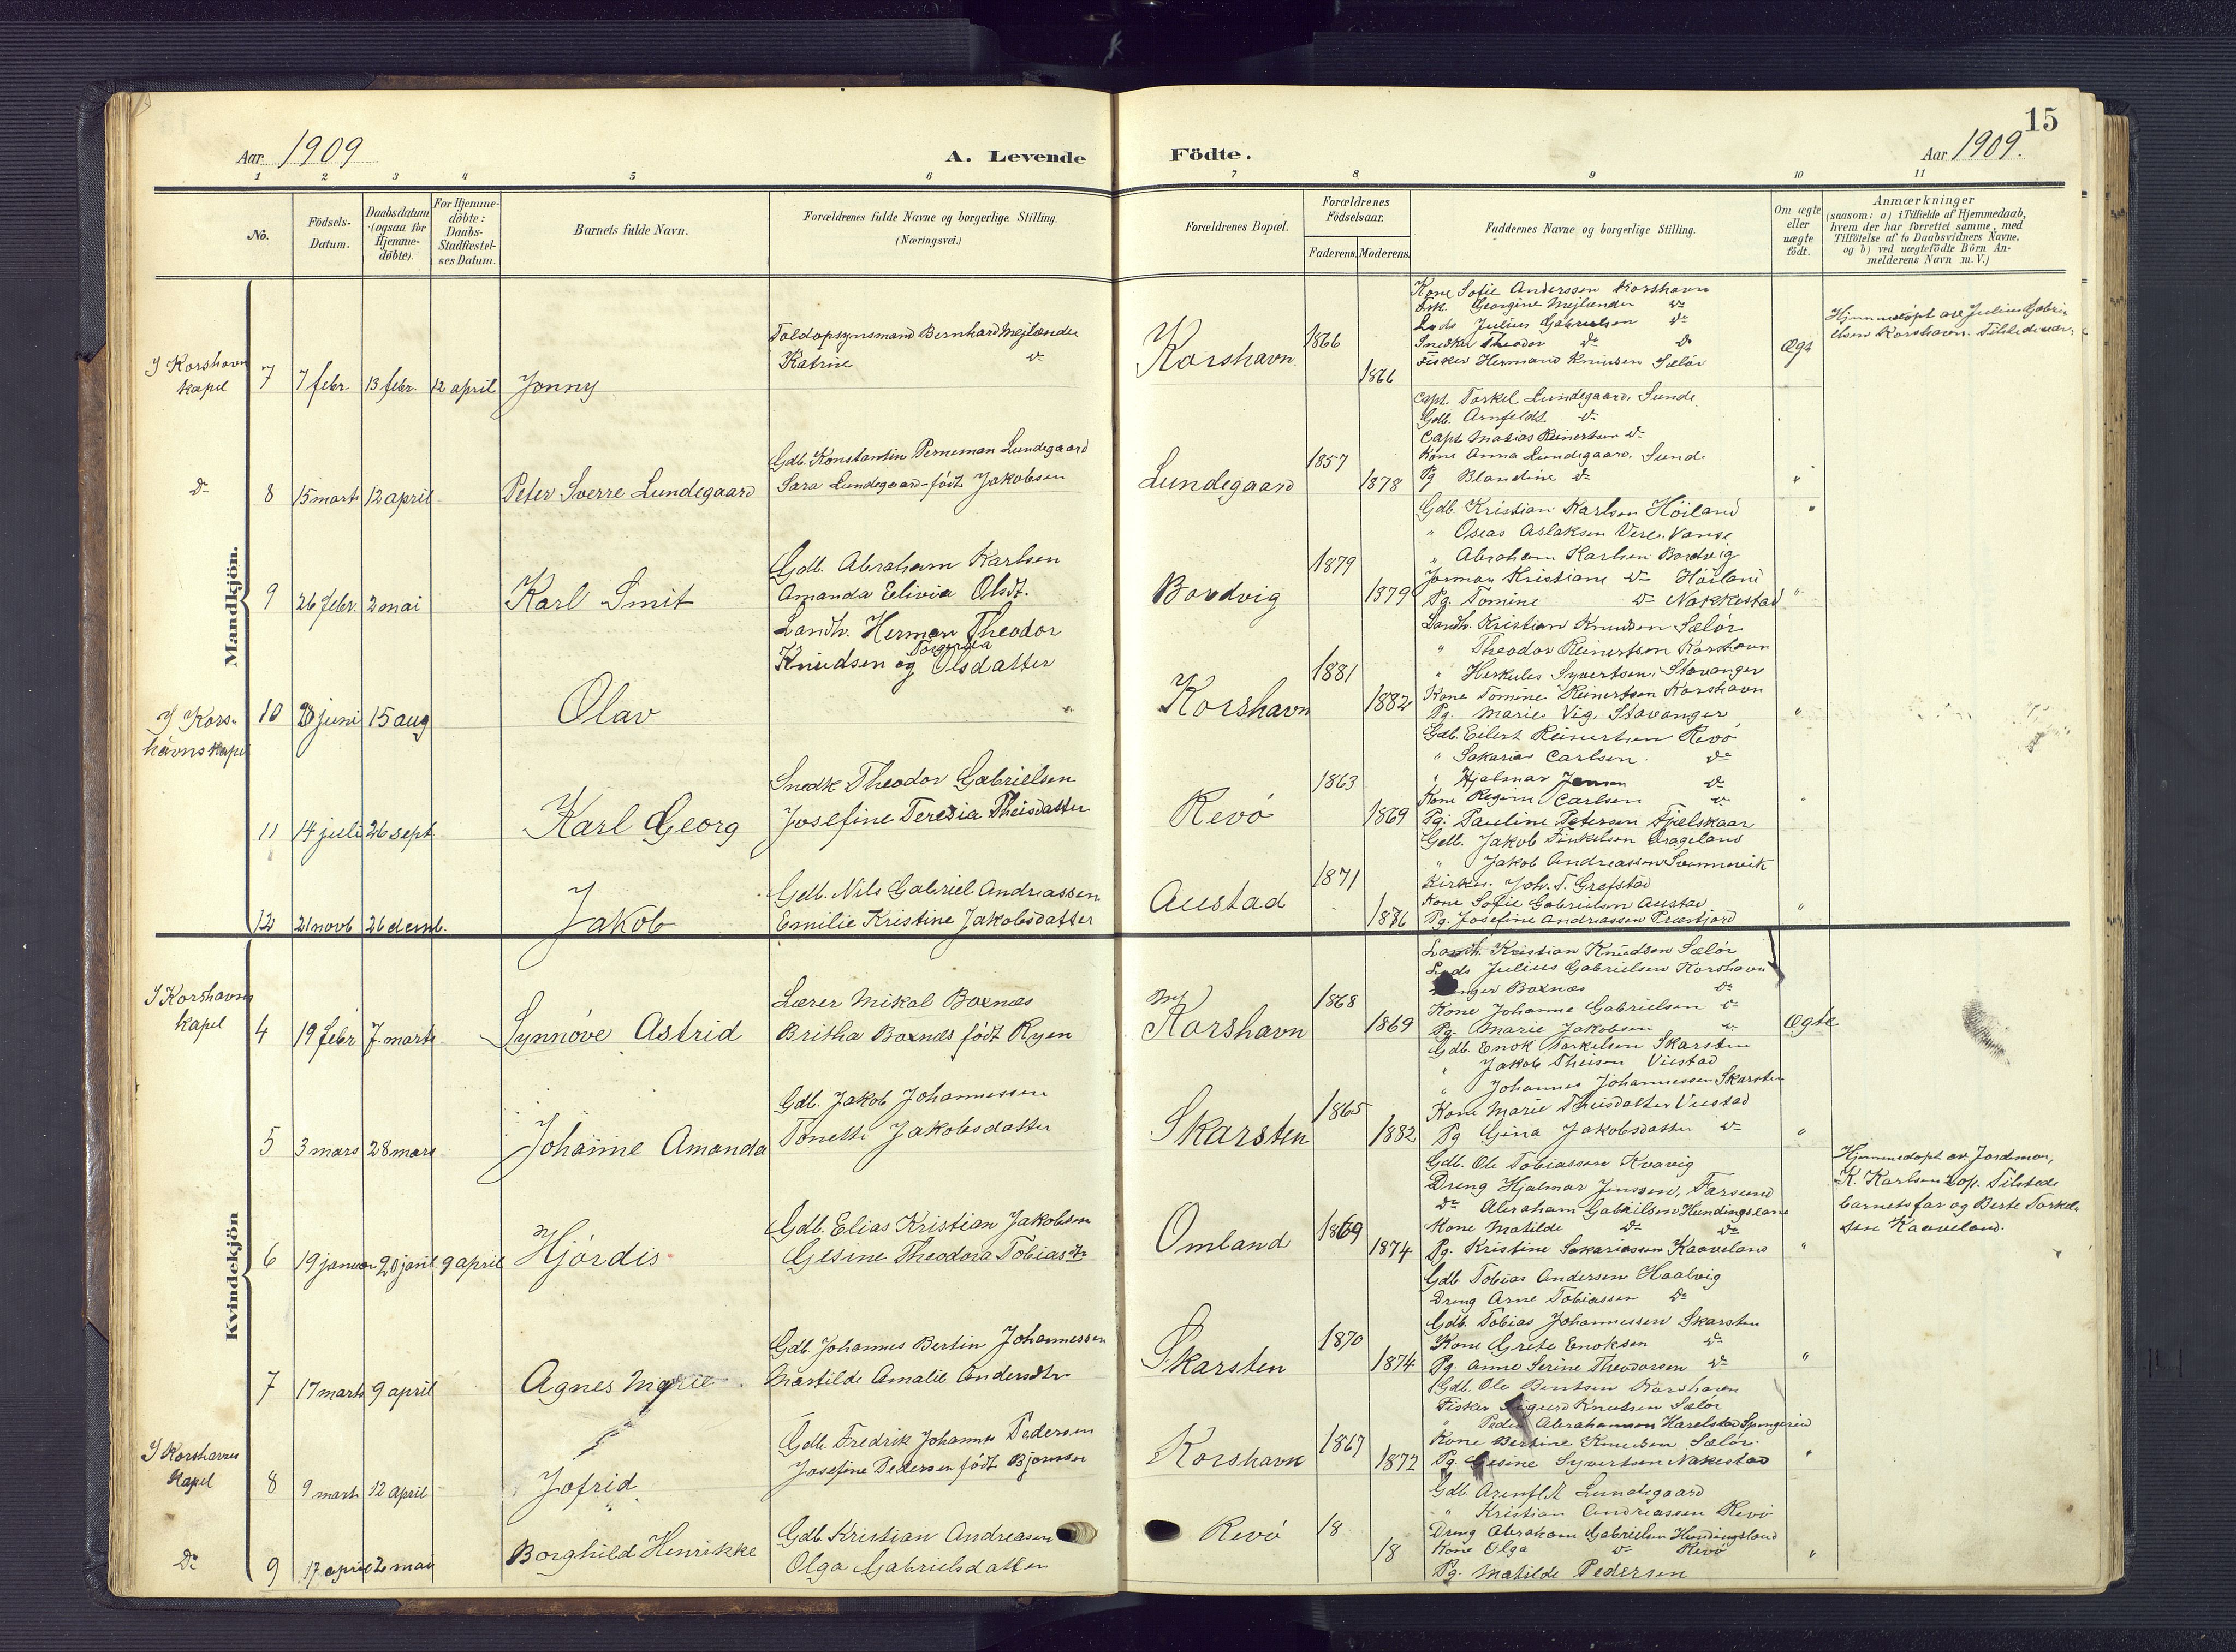 15
Aar 1909
A. Levende
Födte.
Aar 1909.
1 2 3 4 5 6 7 8 9 10 11
No.
Födsels-
Datum.
Daabsdatum
(ogsaa for
Hjemme-
döbte).
For Hjemme-
döbte:
Daabs-
Stadfæstel-
ses Datum.
Barnets fulde Navn.
Forældrenes fulde Navne og borgerlige Stilling.
(Næringsvei.)
Forældrenes Bopæl.
Forældrenes
Födselsaar.
Faderens.
Moderens.
Faddernes Navne og borgerlige Stilling.
Om ægte
eller
uægte
födt.
Anmærkninger
(saasom: a) i Tilfælde af Hjemmedaab,
hvem der har forrettet samme, med
Tilföielse af to Daabsvidners Navne,
og b) ved uægtefödte Börn An-
melderens Navn m. V.)
Mandkjön.
I Korshavn
kapel
7 7 febr. 13 febr. 12 april Jonny
Toldopsynsmand Bernhard Mejlænder
Katrine do
Korshavn 1866 1866
Kone Sofie Anderssen Korshavn
Frk. Georgine Mejlænder do
Lods Julius Gabrielsen do
Snedker Theodor do do
Fisker Hermand Knudsen Sælör
Ægt
Hjemmedöpt av Julius Gabri-
elsen Korshavn.
do 8 15 marts 12 april Peter Sverre Lundegaard
Gdb. Konstantin Perneman Lundegaard
Sara Lundegaard född Jakobsen
Lundegaard 1857 1878
Capt. Torkel Lundegaard, Sunde
Gdb. Arnfeldt do
Capt Matias Reinertsen do
Kone Anna Lundegaard, Sunde
Pg Blandine do
"
9 26 febr. 2 mai Karl Smit
Gdb. Abraham Karlsen
Amanda Elivia Olsdt.
Bordvig 1879 1879
Gdb. Kristian Karlsen Höiland
" Oseas Aslaksen Vere, Vanse
" Abraham Karlsen Bordvig
Jorman Kristiane do Höiland
Pg. Tomine do Nakkestad
"
I Kors-
havns kapel
10 20 juni 15 aug Olav
Landh. Herman Theodor
Knudsen og Torgerda Olsdatter
Korshavn 1881 1882
Landh. Kristian Knudsen Sælör
" Theodor Reinertsen Korshavn
" Herkules Syvertsen, Stavanger
Kone Tomine Reinertsen Korshavn
Pg. Marie Vig Stavanger
"
11 14 juli 26 sept Karl Georg
Snedk Theodor Gabrielsen
Josefine Teresia Theisdatter
Revö 1863 1869
Gdb. Eilert Reinertsen Revö
" Sakarias Carlsen do
" Hjalmar Jensen do
Kone Regine Carlsen do
Pg. Pauline Petersen Fjælskaar
12 21 novb 26 demb. Jakob
Gdb. Nils Gabriel Andreassen
Emilie Kristine Jakobsdatter
Austad 1871 1876
Gdb. Jakob Tinkelsen Drageland
" Jakob Andreassen Svennevik
Kirkes. Joh. T. Grefstad
Kone Sofie Gabrielsen Austad
Pg. Josefine Andreassen Præstjord
"
Kvindekjön
I Korshavns
kapel
4 19 febr 7. marts Synnöve Astrid
Lærer Mikal Boxnæs
Britha Boxnæs födt Ryen
Korshavn 1868 1869
Landh. Kristian Knudsen Sælör
Lods Julius Gabrielsen Korshavn
Boxnæs do
Kone Johanne Gabrielsen do
Pg. Marie Jakobsen do
Ægte
5 3 mars 28 mars Johanne Amanda
Gdb. Jakob Johannessen
Tonette Jakobsdatter
Skarsten 1865 1882
Gdb. Enok Torkelsen Skarsten
" Jakob Theisen Viestad
" Johannes Johannessen Skarsten
Kone Marie Theisdatter Viestad
Pg Gina Jakobsdatter do
"
6 19 januar 20 jan 9 april Hjördis
Gdb. Elias Kristian Jakobsen
Gesine Theodora Tobiasdtr
Omland 1869 1874
Gdb. Ole Tobiassen Kvavig
Dreng Hjalmar Jenssen, Farsund
do Abraham Gabrielsen Hundingsland
Kone Matilde do do
Pg. Kristine Sakariassen Kaaveland
"
Hjemmedöpt av Jordemor,
K. Karlsen Tilstede
barnets far og Berte Torkel-
sen Kaaveland.
7 17 marts 9 april Agnes Marie
Gdb. Johannes Bertin Johannessen
Martilde Amalie Andersdtr
Skarsten 1870 1874
Gdb Tobias Andersen Haalvig
Dreng Arne Tobiassen do
Gdb. Tobias Johannessen Skarsten
Kone Grete Enoksen do
Pg. Anne Serine Theodorsen do
"
I Korshavns
Kapel
8 9 marts 12 april Jofrid
Gdb. Fredrik Johannes Pedersen
Josefine Pedersen födt Bjornsen
Korshavn 1867 1872
Gdb. Ole Berntsen Korshavn
Fisker Sigurd Knutsen Sælör
" Peder Abrahamsen Harelstad Spangereid
Kone Bertine Knudsen Sælör
Pg. Gesine Syvertsen Nakestad
"
do 9 17 april 2 mai Borghild Henrikke
Gdb. Kristian Andreasen
Olga Gabrielsdatter
Revö 18 18
Gdb Arenfelt Lundegaard
" Kristian Andreassen Revö
Dreng Abraham Gabrielsen Hundingsland
Kone Olga do Revö
Pg. Matilde Pedersen
"